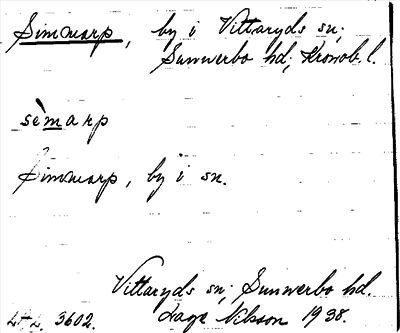 Simmarp, by i Vittaryds sn;
Sunnerbo hd; Kronob. l.
sèmarp
Simmarp, by i sn.
Vittaryds sn; Sunnerbo hd.
3602. Lage Nilsson 1938.